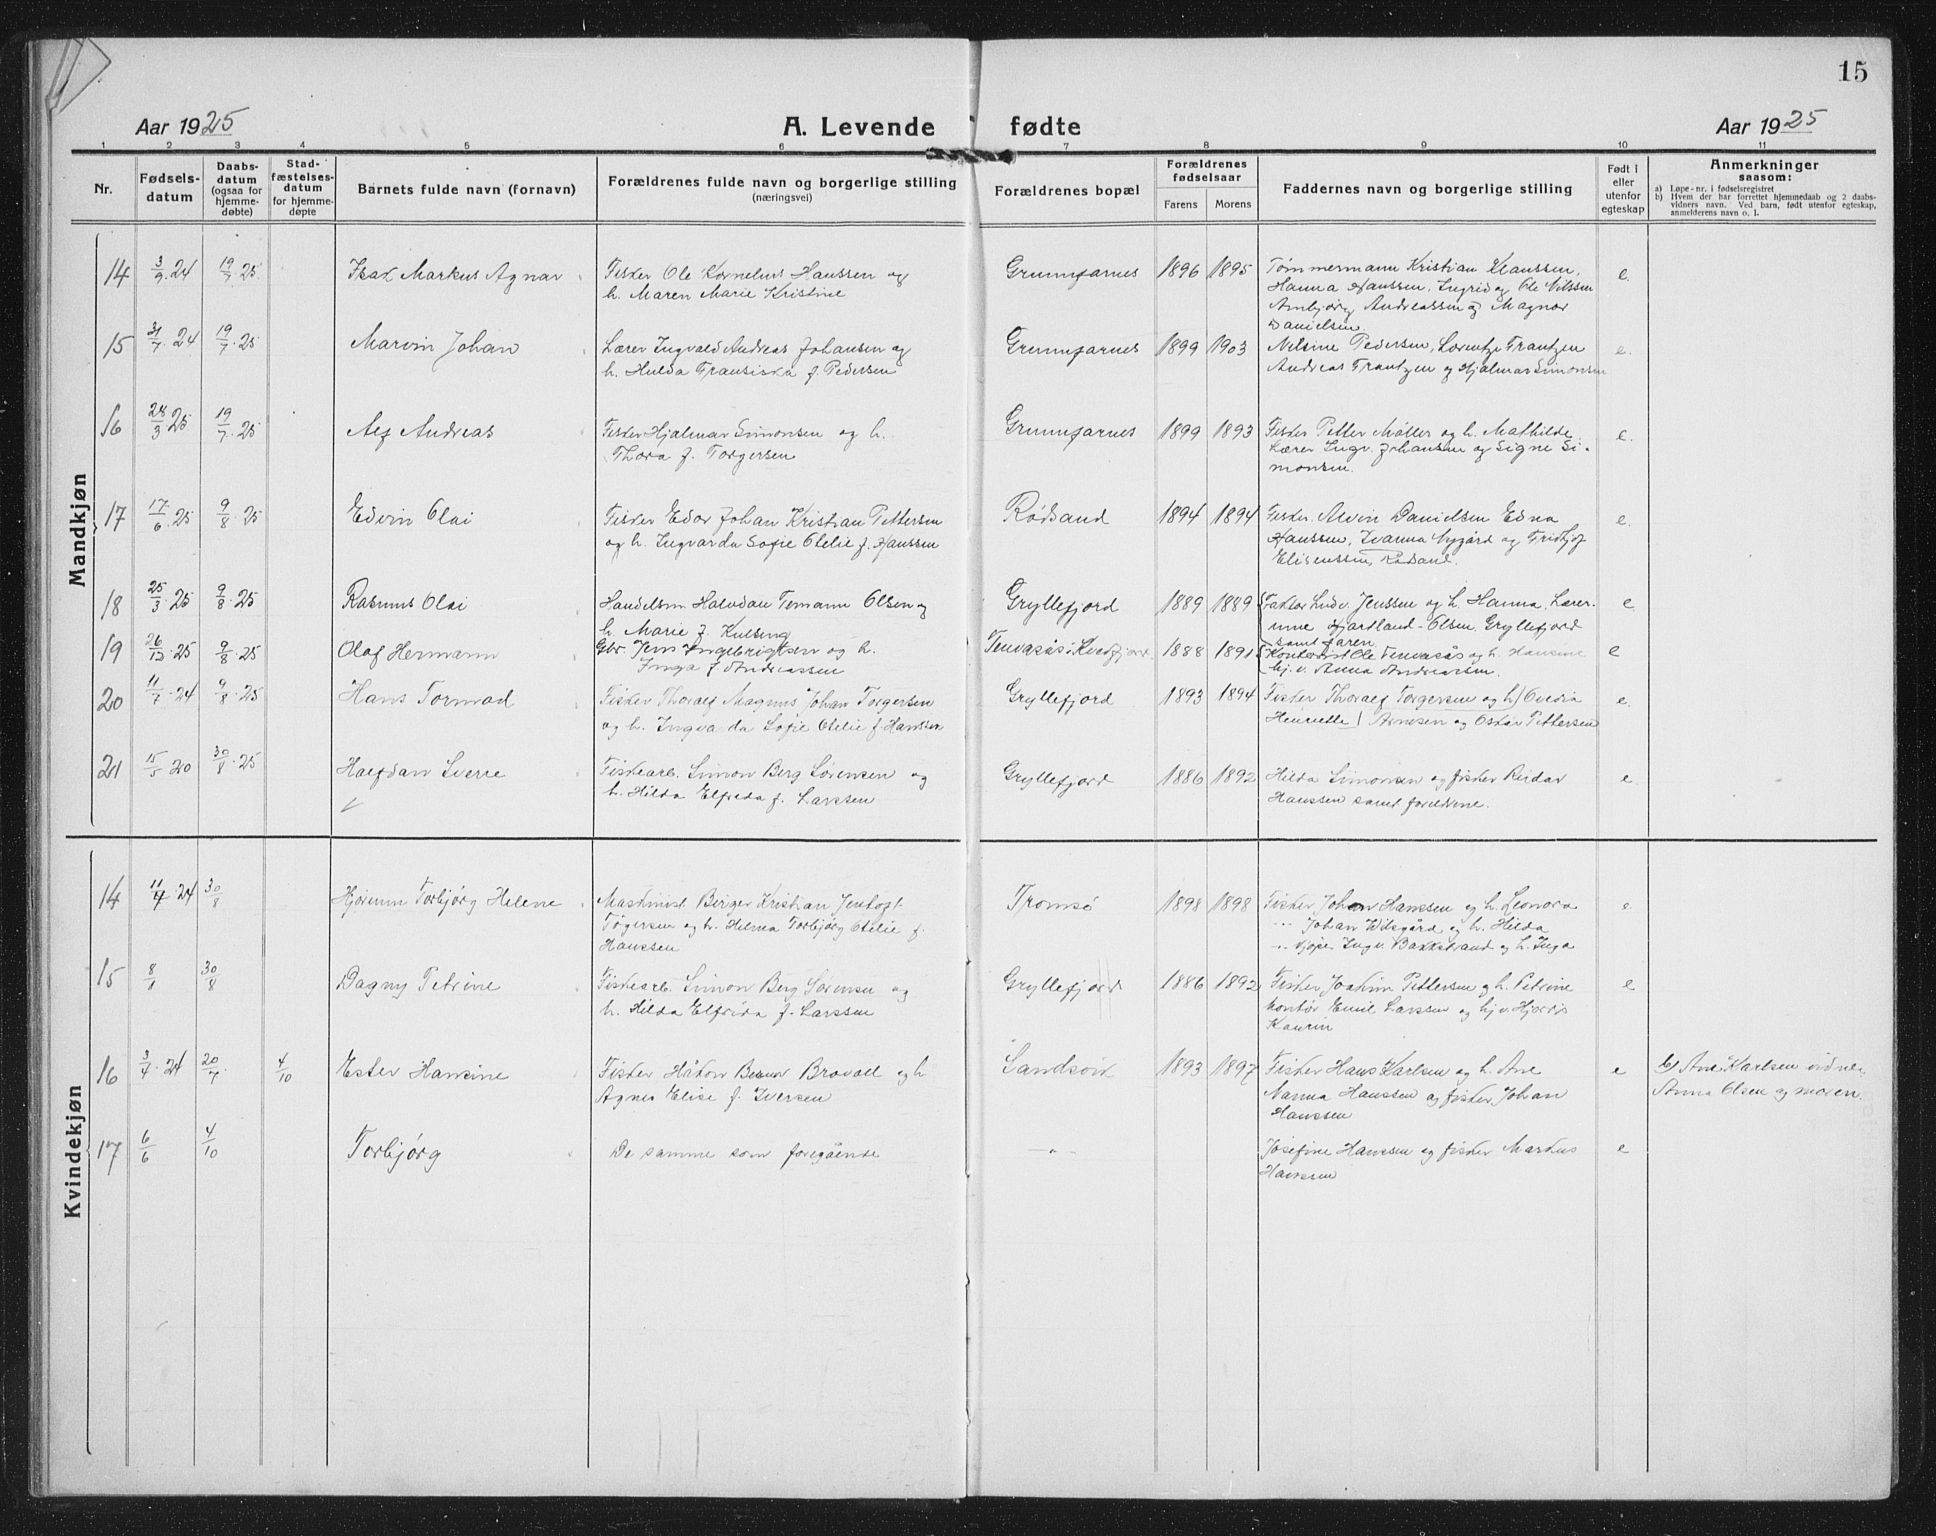 15
Aar 1925 A. Levende fødte Aar 1925
1 2 3 4 5 6 7 8 9 10 11
Nr.
Fødsels-
datum
Daabs-
datum
(ogsaa for
hjemme-
døbte)
Stad-
fæstelses-
datum
for hjemme-
døpte
Barnets fulde navn (fornavn)
Forældrenes fulde navn og borgerlige stilling
(næringsvei)
Forældrenes bopæl
Forældrenes
fødselsaar
Farens Morens
Faddernes navn og borgerlige stilling
Født i
eller
utenfor
egteskap
Anmerkninger
saasom:
a) Løpe-nr. i fødselsregistret
b) Hvem der har forrettet hjemmedaab og 2 daabs-
vidners navn. Ved barn, født utenfor egteskap,
anmelderens navn o. l.
Mandkjøn
14 3/9 24 19/7 25 Isak Markus Agnar
Fisker Ole Kornelius Hanssen og
h. Maren Marie Kristine
Grunnfarnes 1896 1895
Tømmermann Kristian Klaussen,
Hanna Hanssen, Ingrid og Ole Nilssen
Arnbjørg Andreassen og Magnor
Danielsen
e.
15 31/7 24 19/7 25 Marvin Johan
Lærer Ingvald Andreas Johansen og
h. Hulda Fransiska f. Pedersen
Grunnfarnes 1899 1903
Nilsine Pedersen, Lorentze Frantzen
Andreas Frantzen og Hjalmar Simonsen
e.
16 28/3 25 19/7 25 Alf Andreas
Fisker Hjalmar Simonsen og h.
Thora f. Torgersen
Grunnfarnes 1899 1893
Fisker Petter Møller og h. Mathilde
Lærer Ingv. Johansen og Signe Si-
monsen.
e.
17 17/6 25 9/8 25 Edvin Olai
Fisker Edor Johan Kristian Pettersen
og h. Ingvarda Sofie Otelie f. Hanssen
Rødsand 1894 1894
Fisker Alvin Danielsen Edna
Hanssen, Ivanna Nygård og Fridtjof
Elisenssen, Rødsand.
e.
18 25/3 25 9/8 25 Rasmus Olai
Handelsm. Halvdan Temann Olsen og
h. Marie f. Kulseng
Gryllefjord 1889 1889
Faktor Ludv. Jenssen og h. Hanna, Lærer-
inne Hjartland-Olsen, Gryllefjord
samt faren
e
19 26/12 25 9/8 25 Olaf Hermann
Gbr. Jens Ingebrigtsen og h.
Inga f. Andreassen
Tenvasås i Kvæfjord 1888 1891
Kontorist Ole Tenvasås og h. Hansine
hj. v. Anna Andreassen.
e
20 11/7 24 9/8 25 Hans Tormod
Fisker Thoralf Magnus Johan Torgersen
og h. Ingvarda Sofie Otelie f Hanssen
Gryllefjord 1893 1894
Fisker Thoralf Torgersen og h) Ovedia
Henriette / Arnesen og Oskar Pettersen
e.
21 15/5 20 30/8 25 Halfdan Sverre
Fiskearb. Simon Berg Sørensen og
h. Hilda Elfrida f. Larssen
Gryllefjord 1886 1892
Hilda Simonsen og fisker Reidar
Hanssen samt foreldrene.
e.
Kvindekjøn
14 11/4 24 30/8 Hjørunn Torbjørg Helene
Maskinist Birger Kristian Jentoft
Tøgersen og h. Hilma Torbjørg Otelie f.
Hanssen
Tromsø 1898 1898
Fisker Johan Hanssen og h. Leonora
" Johan Wilsgård og h. Hilda
" Ingv. Bakkstrand og h. Inga
e
15 8/1 30/8 Dagny Petrine
Fiskearb. Simon Berg Sørensen og
h. Hilda Elfrida f. Larssen
Gryllefjord 1886 1892
Fisker Joakim Pettersen og h. Petrine
kontor Emil Larssen og hj. v. Hjørdis
Kaurin
e
16 3/4 24 20/7 4/10 Ester Hansine
Fisker Håkon Bravoll og h
Agnes Elise f. Iversen
Sandsvik 1893 1897
Fisker Hans Karlsen og h. Ane
Nanna Hanssen og fisker Johan
Hanssen
e
b) Ane Karlsen vidne-
Anna Olsen og moren.
17 6/6 4/10 Torbjørg
De samme som foregående
—"—
Josefine Hanssen og fisker Markus
Hanssen
e